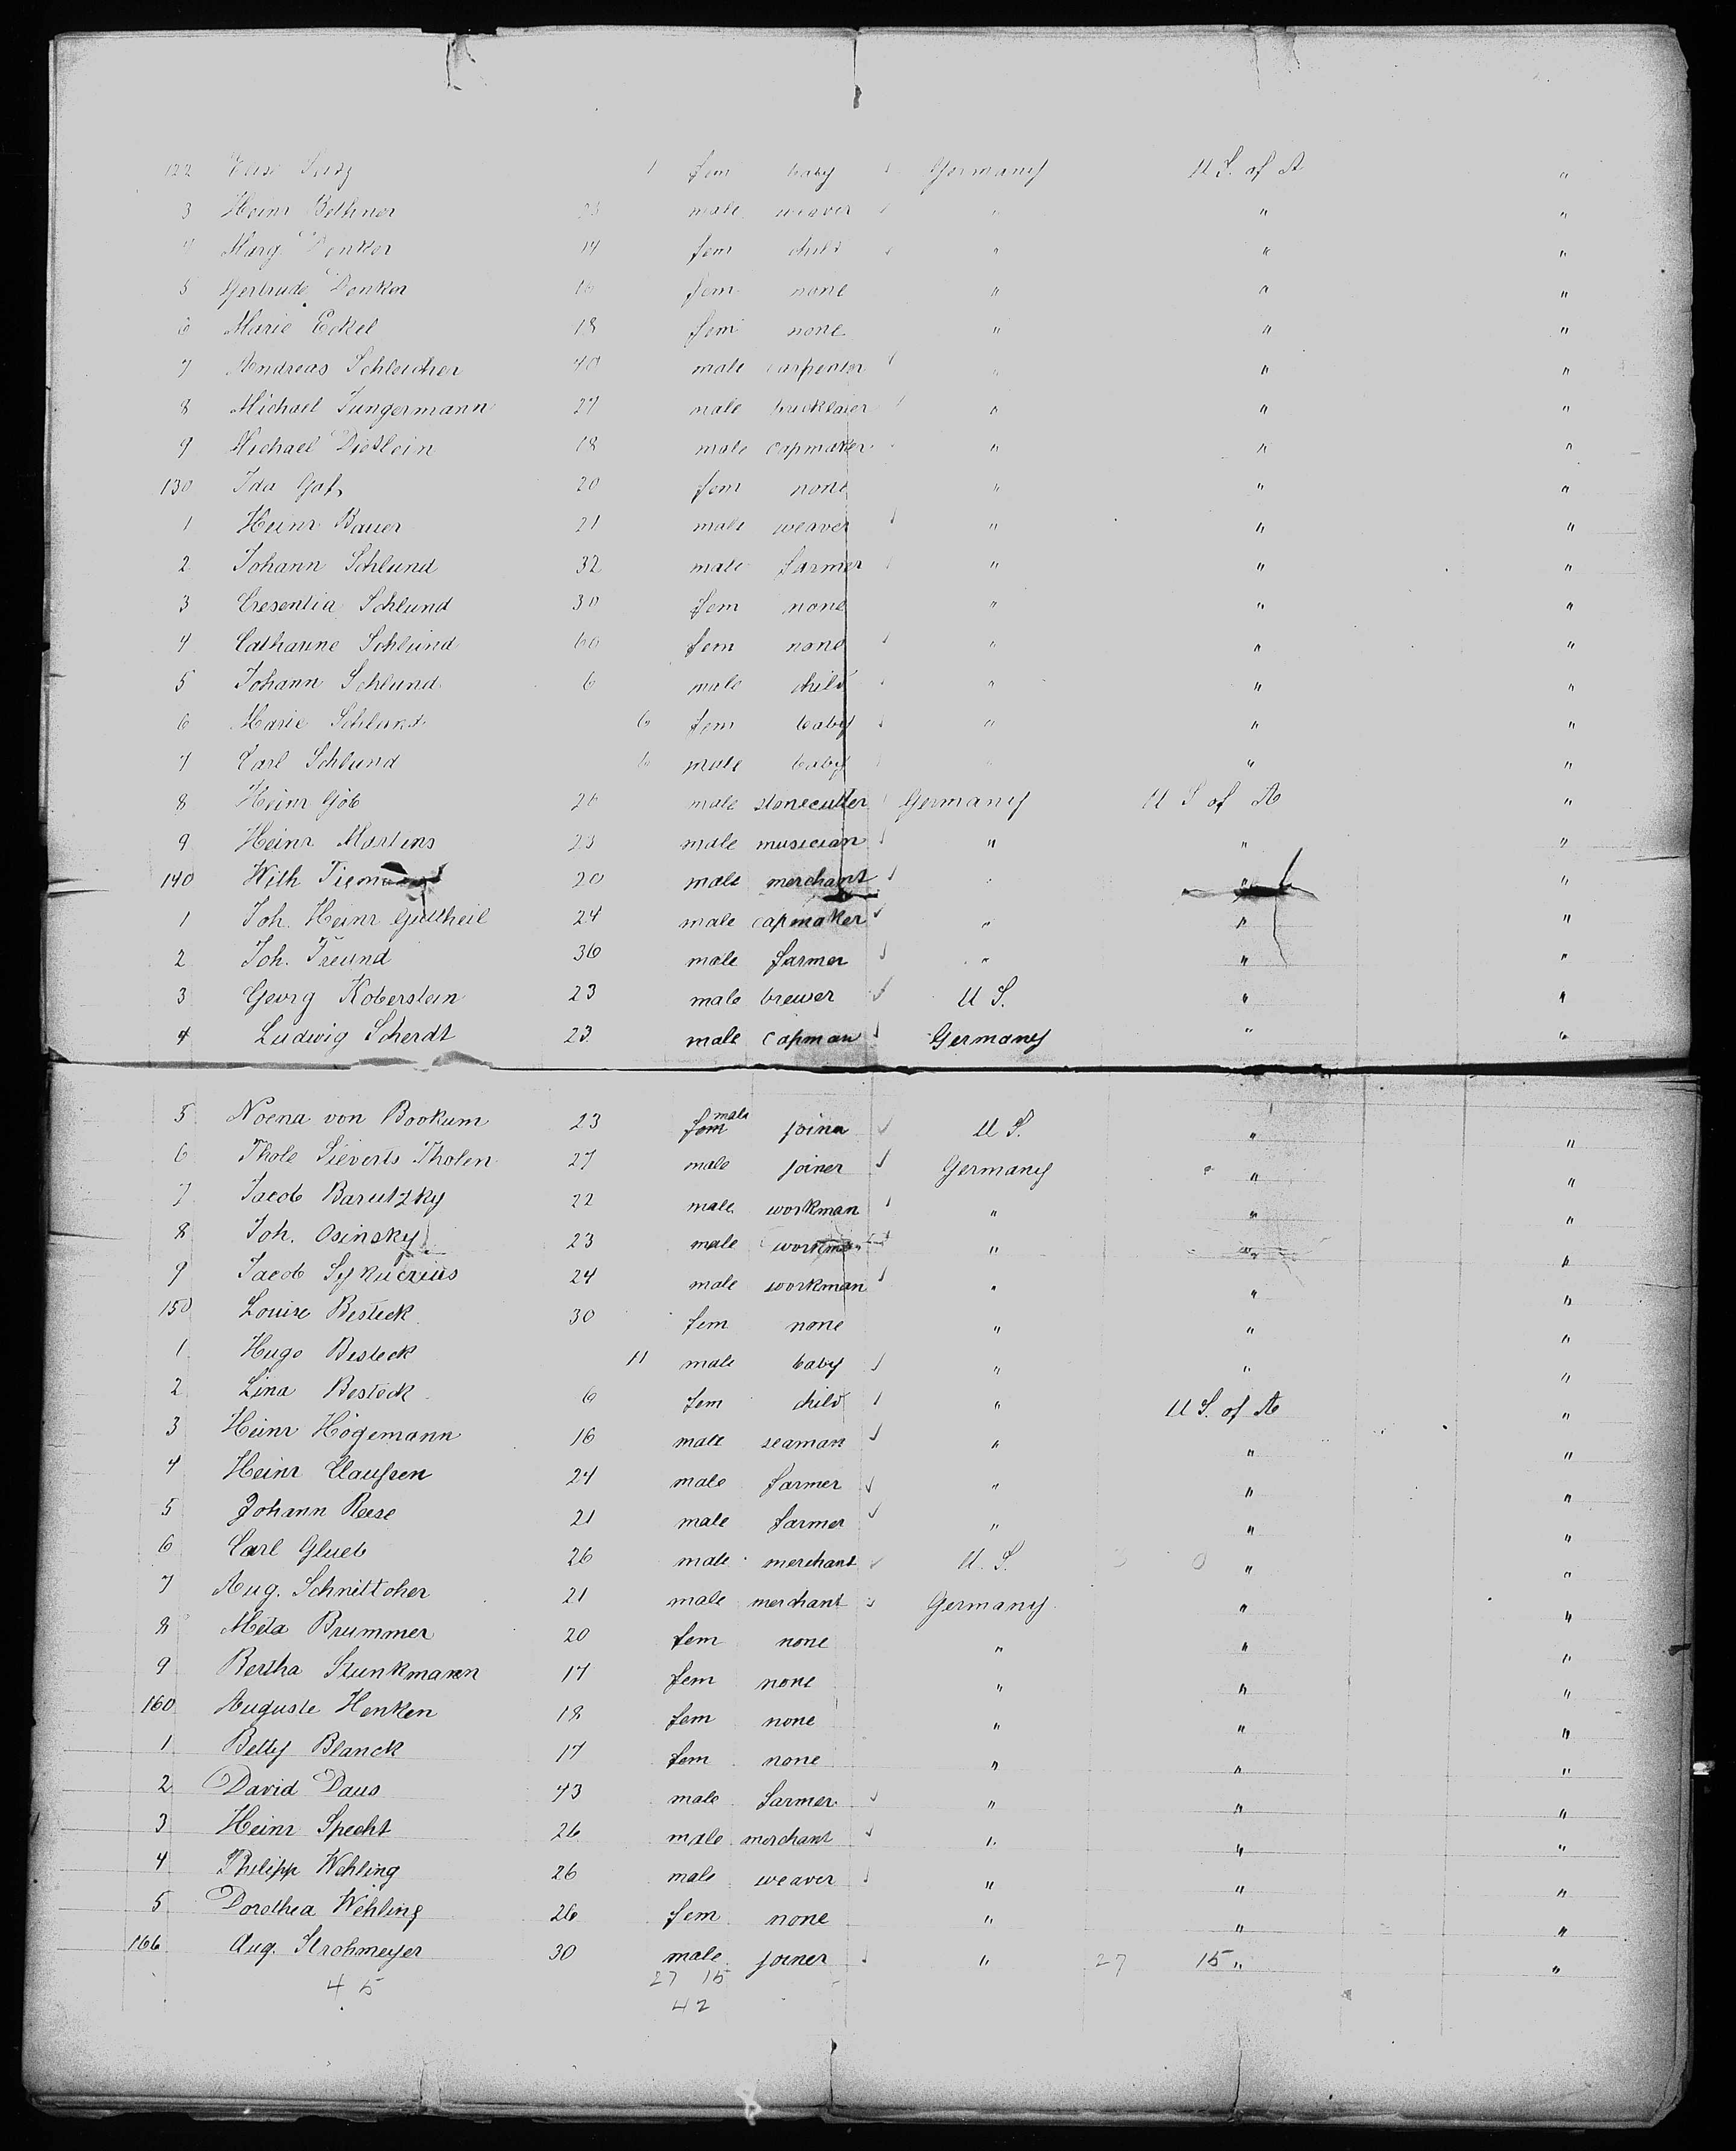 122 Elise Seitz 1 fem baby Germany U S. of A "
3 Heinr Bethner 23 male weaver " " "
4 Marg. Denker 14 fem child " " "
5 Gertrude Denker 16 fem none " " "
6 Marie Eckel 18 fem none " " "
7 Andreas Schleicher 40 male carpenter " " "
8 Michael Jungermann 27 male bricklaier " " "
9 Michael Dietlein 18 male capmaker " " "
130 Ida 20 fem none " " "
1 Heinr Bauer 21 male weaver " " "
2 Johann Schlund 32 male farmer " " "
3 Cresentia Schlund 30 fem none " " "
4 Catharine Schlund 60 fem none " " "
5 Johann Schlund 6 male child " " "
6 Marie Schlund 6 fem baby " " "
7 Carl Schlund 6 male baby " " "
8 Heinr Göb 26 male stonecutter Germany U S of A "
9 Heinr Martens 23 male musician " " "
140 Wilh 20 male merchant " " "
1 Joh. Heinr Guttheil 24 male capmaker " " "
2 Joh. Freund 36 male farmer " " "
3 Georg Koberstein 23 male brewer U S. " "
4 Ludwig Scherdt 23 male capman Germany " "
5 Noena von Bookum 23 fem male joina U S. " "
6 Thole Sieverts Tholen 27 male joiner Germany " "
7 Jacob Barutzky 22 male workman " " "
8 Joh. Osinsky 23 male workman " " "
9 Jacob 24 male workman " " "
150 Louise Besteck 30 fem none " " "
1 Hugo Besteck 11 male baby " " "
2 Lina Besteck 6 fem child " U S. of A "
3 Heinr Högemann 16 male seaman " " "
4 Heinr Claußen 24 male farmer " " "
5 Johann Reese 21 male farmer " " "
6 Carl Glueb 26 male merchant U. S. " "
7 Aug. Schnittcher 21 male merchant Germany " "
8 Meta Brummer 20 fem none " " "
9 Bertha Stunkmann 17 fem none " " "
160 Auguste Henken 18 fem none " " "
1 Betty Blanck 17 fem none " " "
2 David Daus 43 male farmer " " "
3 Heinr Specht 26 male merchant " " "
4 Philipp Wehling 26 male weaver " " "
5 Dorothea Wehling 26 fem none " " "
166 Aug. Strohmeyer 30 male joiner " 27 15 " "
4 5 27 15
42
8